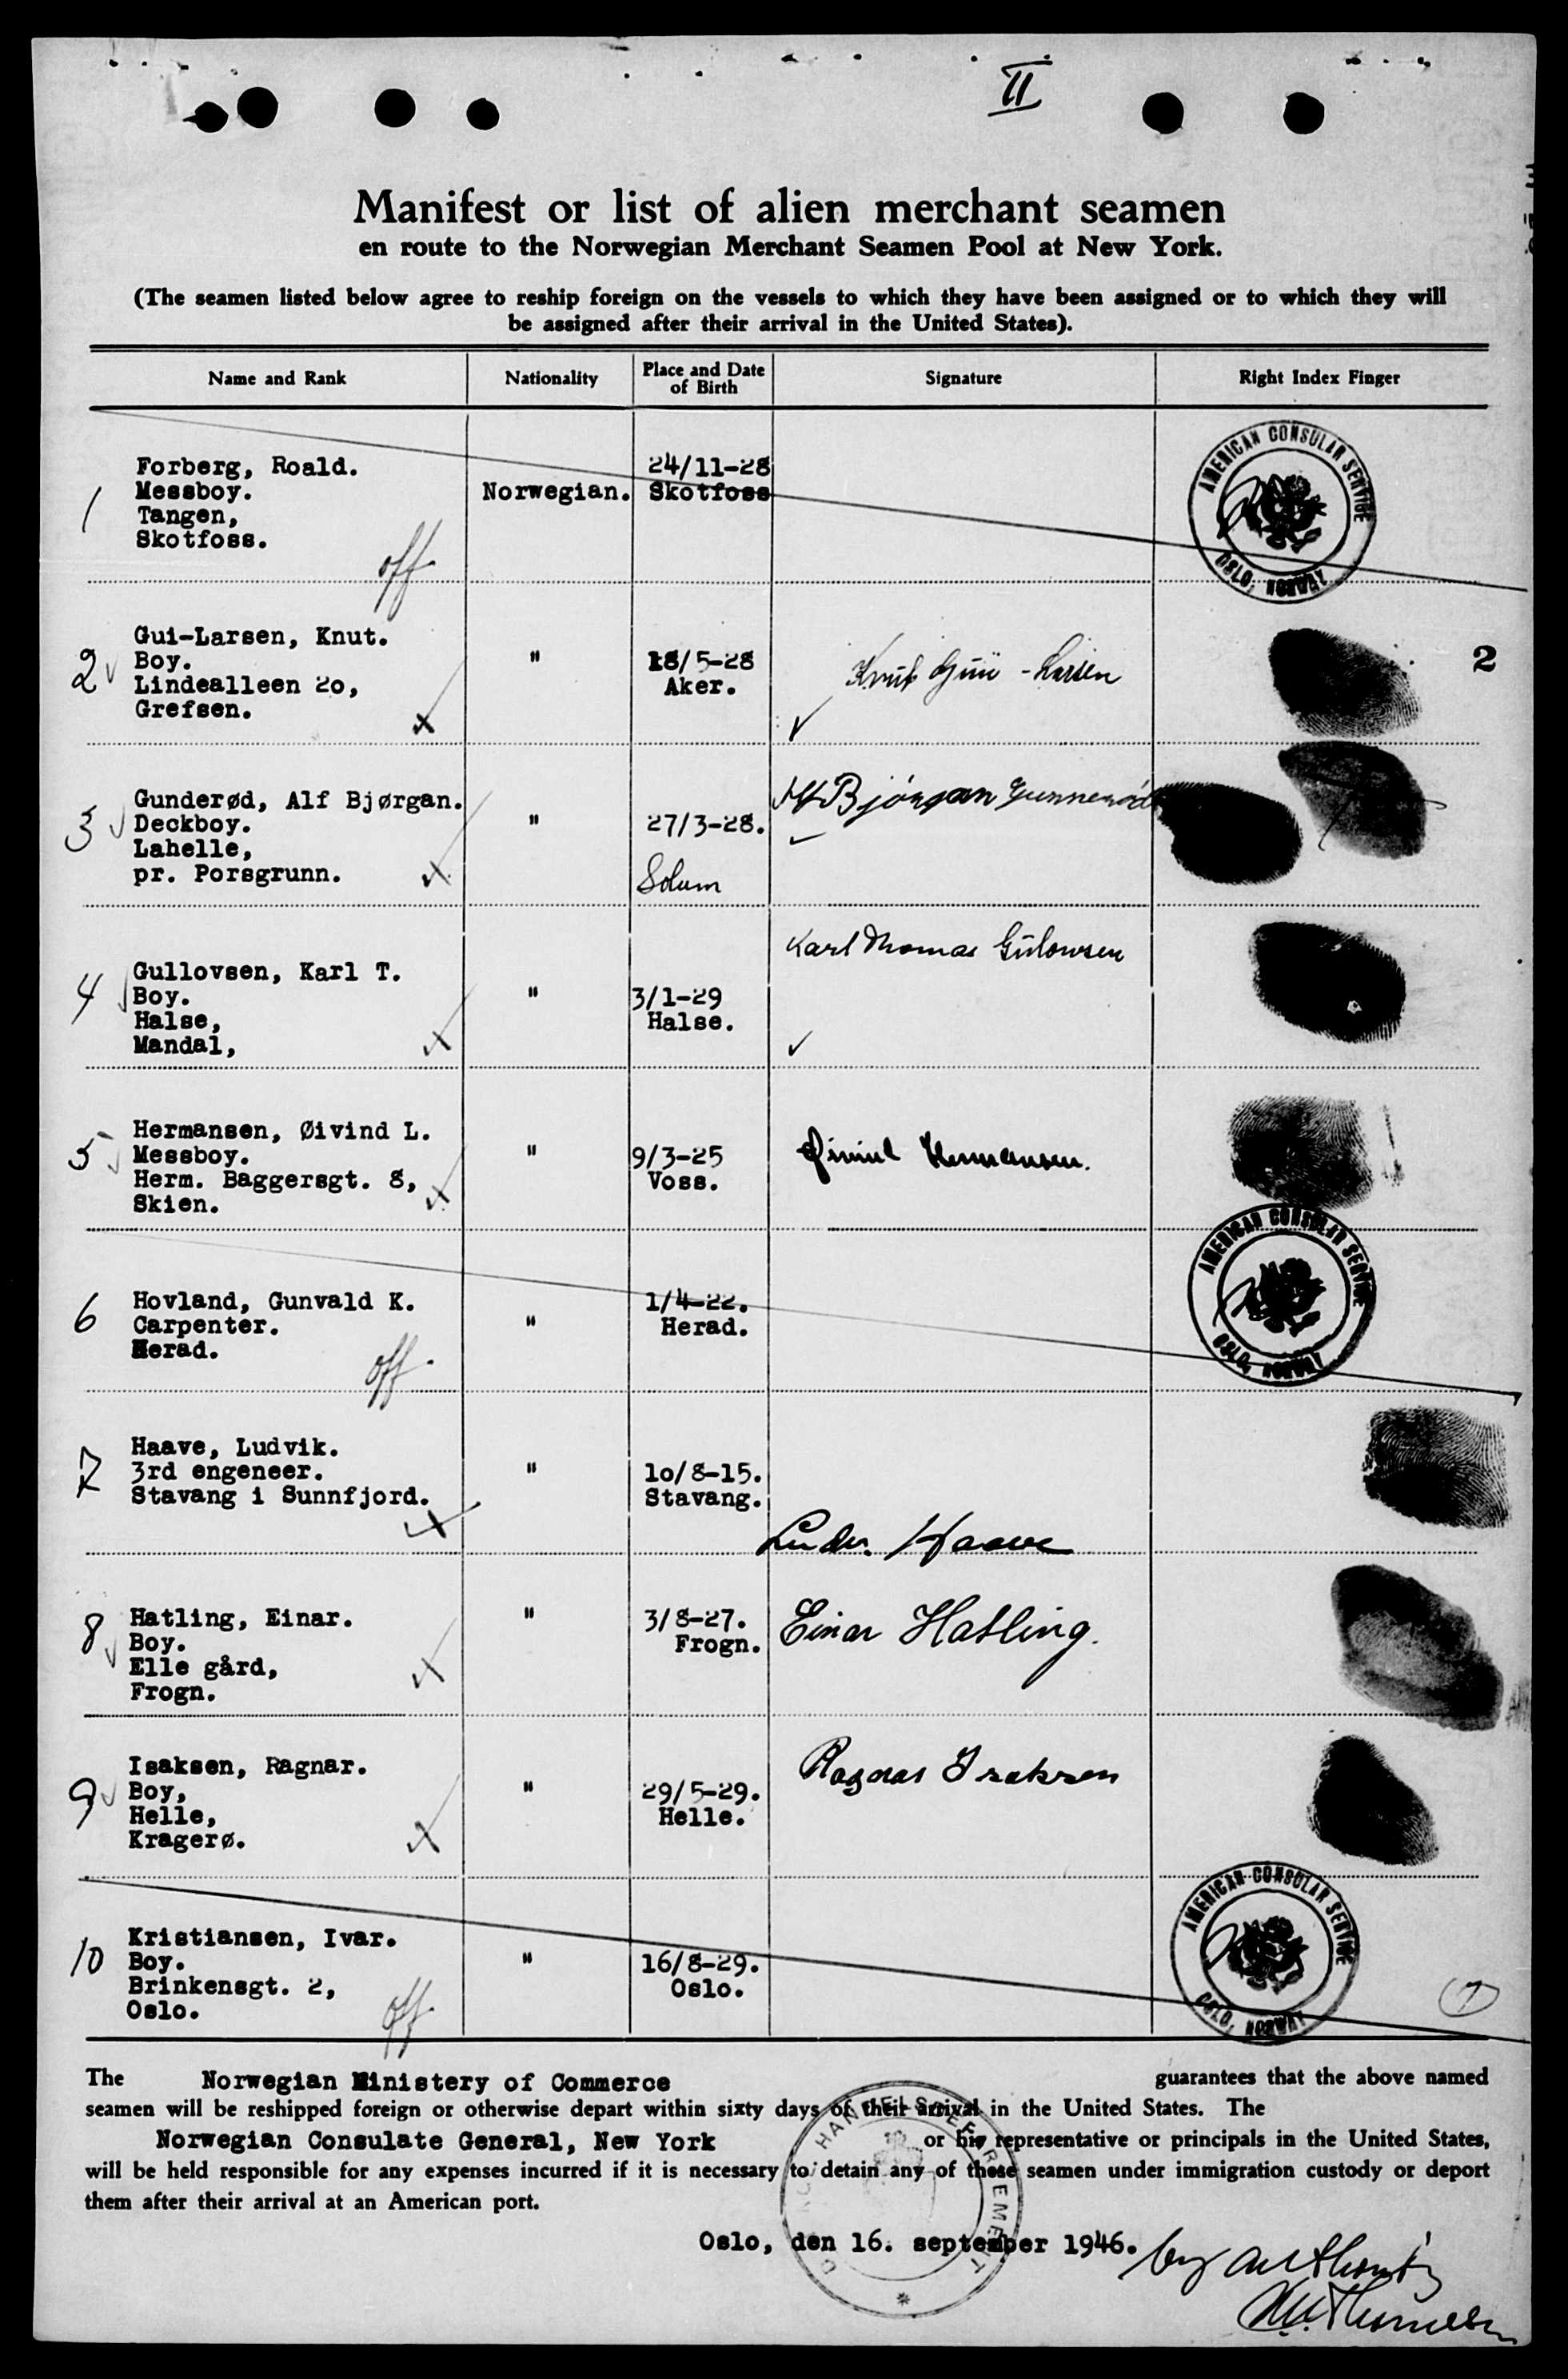 II
Manifest or list of alien merchant seamen
en route to the Norwegian Merchant Seamen Pool at New York.
(The seamen listed below agree to reship foreign on the vessels to which they have been assigned or to which they will
be assigned after their arrival in the United States).
Name and Rank Nationality Place and Date of Birth Signature Right Index Finger
1 Forberg, Roald. 24/11-28
Messboy. Norwegian. Skotfoss
Tangen,
Skotfoss.
off
AMERICAN CONSULAR SERVICE
OSLO, NORWAY
2 Gui-Larsen, Knut.
Boy. " 18/5-28 2
Lindealleen 20, Aker. Knut Gui-Larsen
Grefsen.
3 Gunderød, Alf Bjørgan. Alf Bjørgan Gunnerød
Deckboy. " 27/3-28.
Lahelle,
pr. Porsgrunn. Solum
4 Gullovsen, Karl T. Karl Thomas Gulowsen
Boy. " 3/1-29
Halse, Halse.
Mandal,
5 Hermansen, Øivind L.
Messboy. " 9/3-25 Øivind Hermansen.
Herm. Baggersgt. 8, Voss.
Skien.
AMERICAN CONSULAR SERVICE
OSLO, NORWAY
6 Hovland, Gunvald K. 1/4-22.
Carpenter. " Herad.
Herad.
off
7 Haave, Ludvik.
3rd engeneer. " 10/8-15.
Stavang i Sunnfjord. Stavang.
Ludv. Haave
8 Hatling, Einar. " 3/8-27. Einar Hatling.
Boy. Frogn.
Elle gård,
Frogn.
9 Isaksen, Ragnar. Ragnar Isaksen
Boy, " 29/5-29.
Helle, Helle.
Kragerø.
AMERICAN CONSULAR SERVICE
OSLO, NORWAY
10 Kristiansen, Ivar.
Boy. " 16/8-29.
Brinkensgt. 2, Oslo.
Oslo.
off
The Norwegian Ministery of Commerce guarantees that the above named
seamen will be reshipped foreign or otherwise depart within sixty days of their arrival in the United States. The
Norwegian Consulate General, New York or his representative or principals in the United States,
will be held responsible for any expenses incurred if it is necessary to detain any of these seamen under immigration custody or deport
them after their arrival at an American port.
Oslo, den 16. september 1946.
by authority